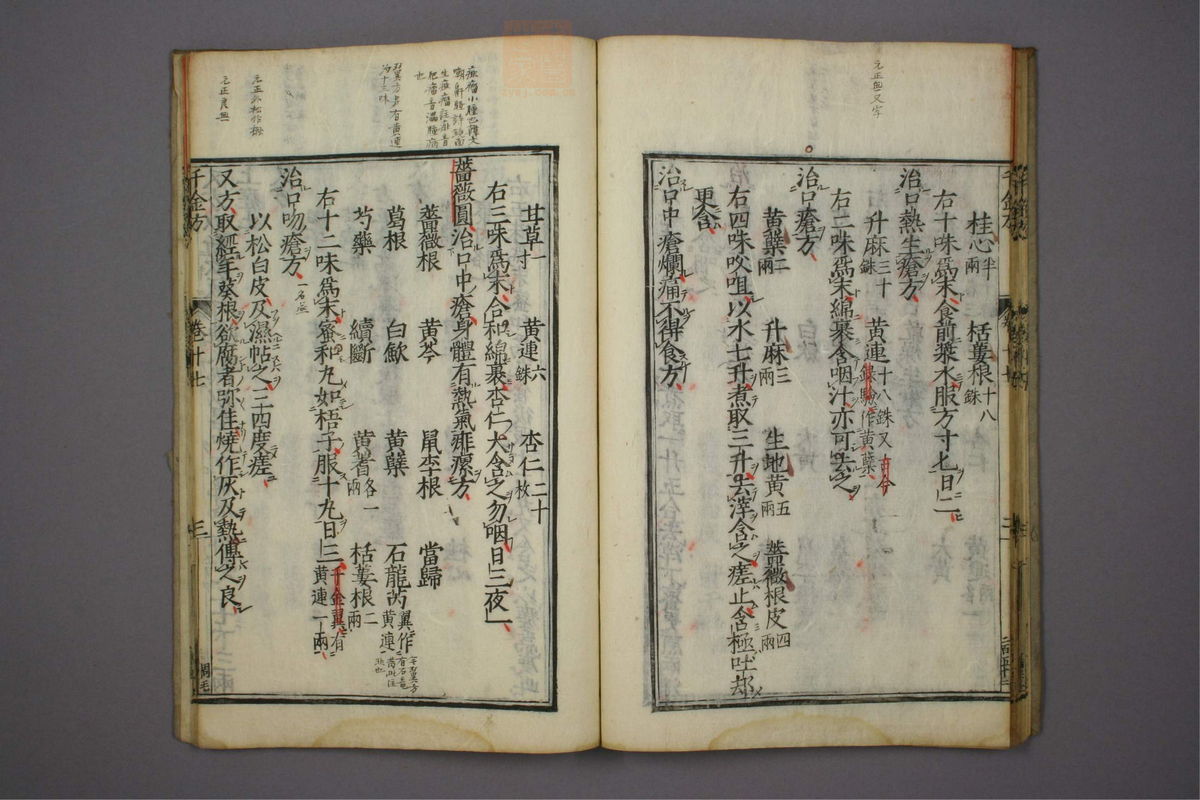 桂心半兩 栝蔞根十八銖
右十味爲末食前漿水服方寸匕日二
治口熱生瘡方
升麻三十銖 黃連十八銖又古今錄驗作黃蘗
右二味爲末綿裹含咽汁亦可去之
治口瘡方
黃蘗二兩 升麻三兩 生地黃五兩 薔薇根皮四兩
右四味㕮咀以水七升煮取三升去滓含之瘥止含極吐却
更含
治口中瘡爛痛不得食方
甘草一寸 黃連六銖 杏仁二十枚
右三味爲末合和綿裹杏仁大含之勿咽日三夜一
薔薇圓治口中瘡身體有熱氣痱瘰方
薔薇根 黃芩 鼠李根 當歸
葛根 白蘞 黃蘗 石龍芮翼作黃連
芍藥 續斷 黃耆各一兩 栝蔞根二兩
右十二味爲末蜜和丸如梧子服十丸日三千金翼有黃連一兩
治口吻瘡方
以松白皮及濕帖之三四度瘥
又方取經年葵根欲腐者弥佳燒作灰及熱傅之良
千金方 卷十七 三
元正無又字
翼方有黃連
爲十三味
元正良無